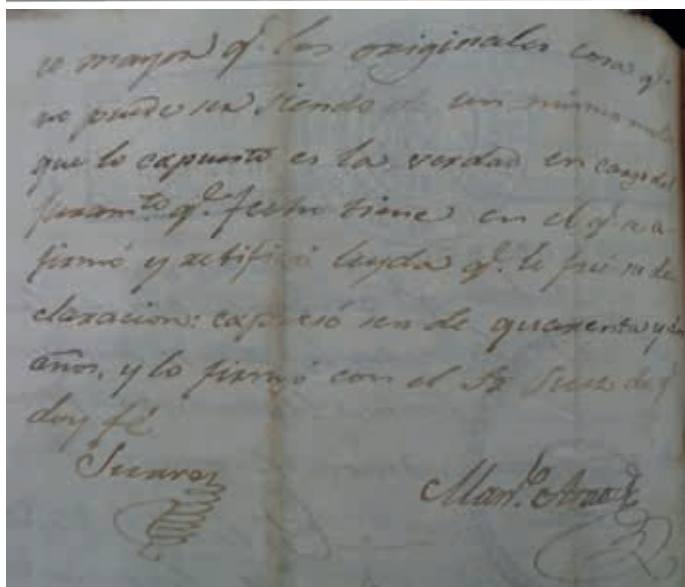 es mayor q.e los originales cosa q.e
no puede ser siendo de un mismo
que lo expuesto es la verdad en cargo del
juram.to q.e fecho tiene en el q.e se a-
firmó y ratificó leyda q.e le fue su de-
claracion: expresó ser de quarenta y dos
años, y lo firmó con el Sr Juez de q.e
doy fé
Suarez
Man.l